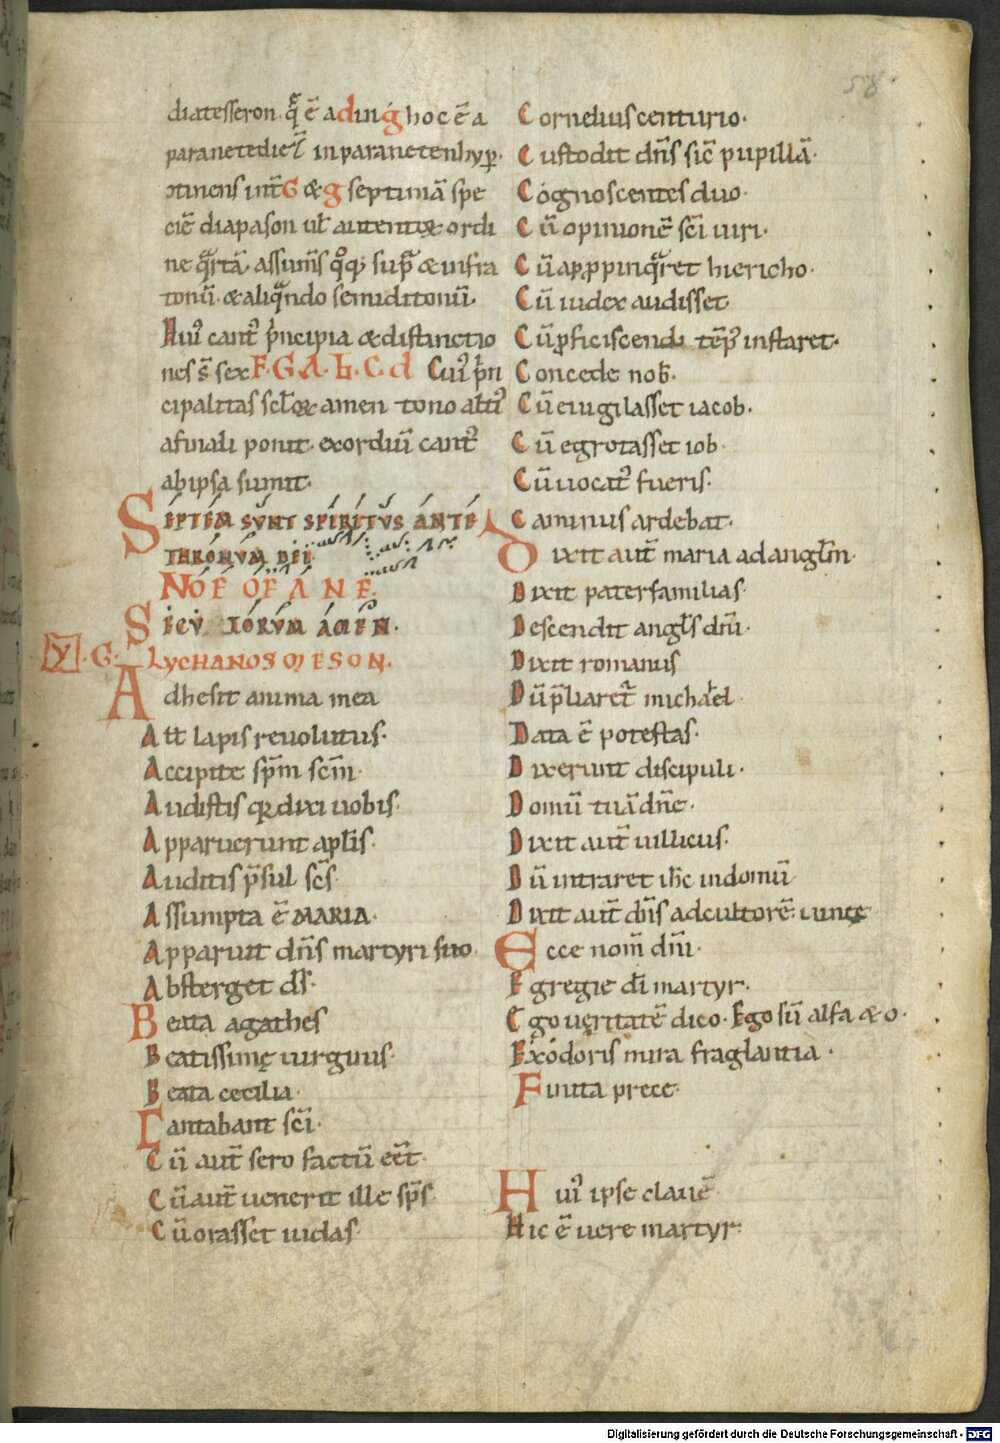 58
diatesseron. q̃ ē a d in g hoc ē a
paranetediet̃ in paranetenhyp̲.
ↄtinens int̃ G & g septimā spe
ciē diapason ul̃ autentꝫ ordi
ne q̃rtā. assum̃s q̊q; sup̃ & infra
tonū. & aliq̃ndo semiditonū.
Huiꝰ cant᷒ p̃ncipia & distinctio
nes s̄ sex F. G. A. b. C. d Cuiꝰ p̃n
cipalitas
amen tono
a finali ponit. exordiū cant᷒
ab ipsa sumit.
SEPTEM SVNT SPIRITVS ANTE
THRONVM DEI
NOEOEANE.
SECVLORVM AMEN.
Y. G. LYCHANOS MESON.
Adhesit anima mea
All̃ lapis reuolutus.
Accipite sp̄m sc̄m.
Audistis qꝛ dixi uobis.
Apparuerunt apl̃is.
Auditis p̃sul sc̄s.
Assumpta ē MARIA.
Apparuit dñs martyri suo.
Absterget ds̄.
Beata agathes
Beatissimę uirginis.
Beata cecilia.
Cantabant sc̄i.
Cū aut̃ sero factū eēt.
Cū aut̃ uenerit ille sp̄s.
Cū orasset iudas.
Cornelius centurio.
Custodit dñs sic̄ pupillā.
Cognoscentes duo.
Cū opinionē sc̄i uiri.
Cū app̲ropinq̃ret hiericho.
Cū iudex audisset
Cū ꝓficiscendi tēpꝰ instaret.
Concede nob̄.
Cū euigilasset iacob.
Cū egrotasset iob.
Cū uocat᷒ fueris.
Caminus ardebat.
Dixit aut̃ maria ad angl̃m.
Dixit paterfamilias.
Descendit angl̃s dñi.
Dixit romanus
Dū p̃liaret᷒ michael.
Data ē potestas.
Dixerunt discipuli.
Domū tuā dñe.
Dixit aut̃ uillicus.
Dū intraret ihc̄ in domū.
Dixit aut̃ dñs ad cultorē uineę
Ecce nom̃ dñi.
Egregie di martyr.
Ego ueritatē dico. Ego sū alfa & o.
Ex odoris mira fraglantia.
Finita prece.
Huiꝰ ipse clauē
Hic ē uere martyr.
Digitalisierung gefördert durch die Deutsche Forschungsgemeinschaft - DFG